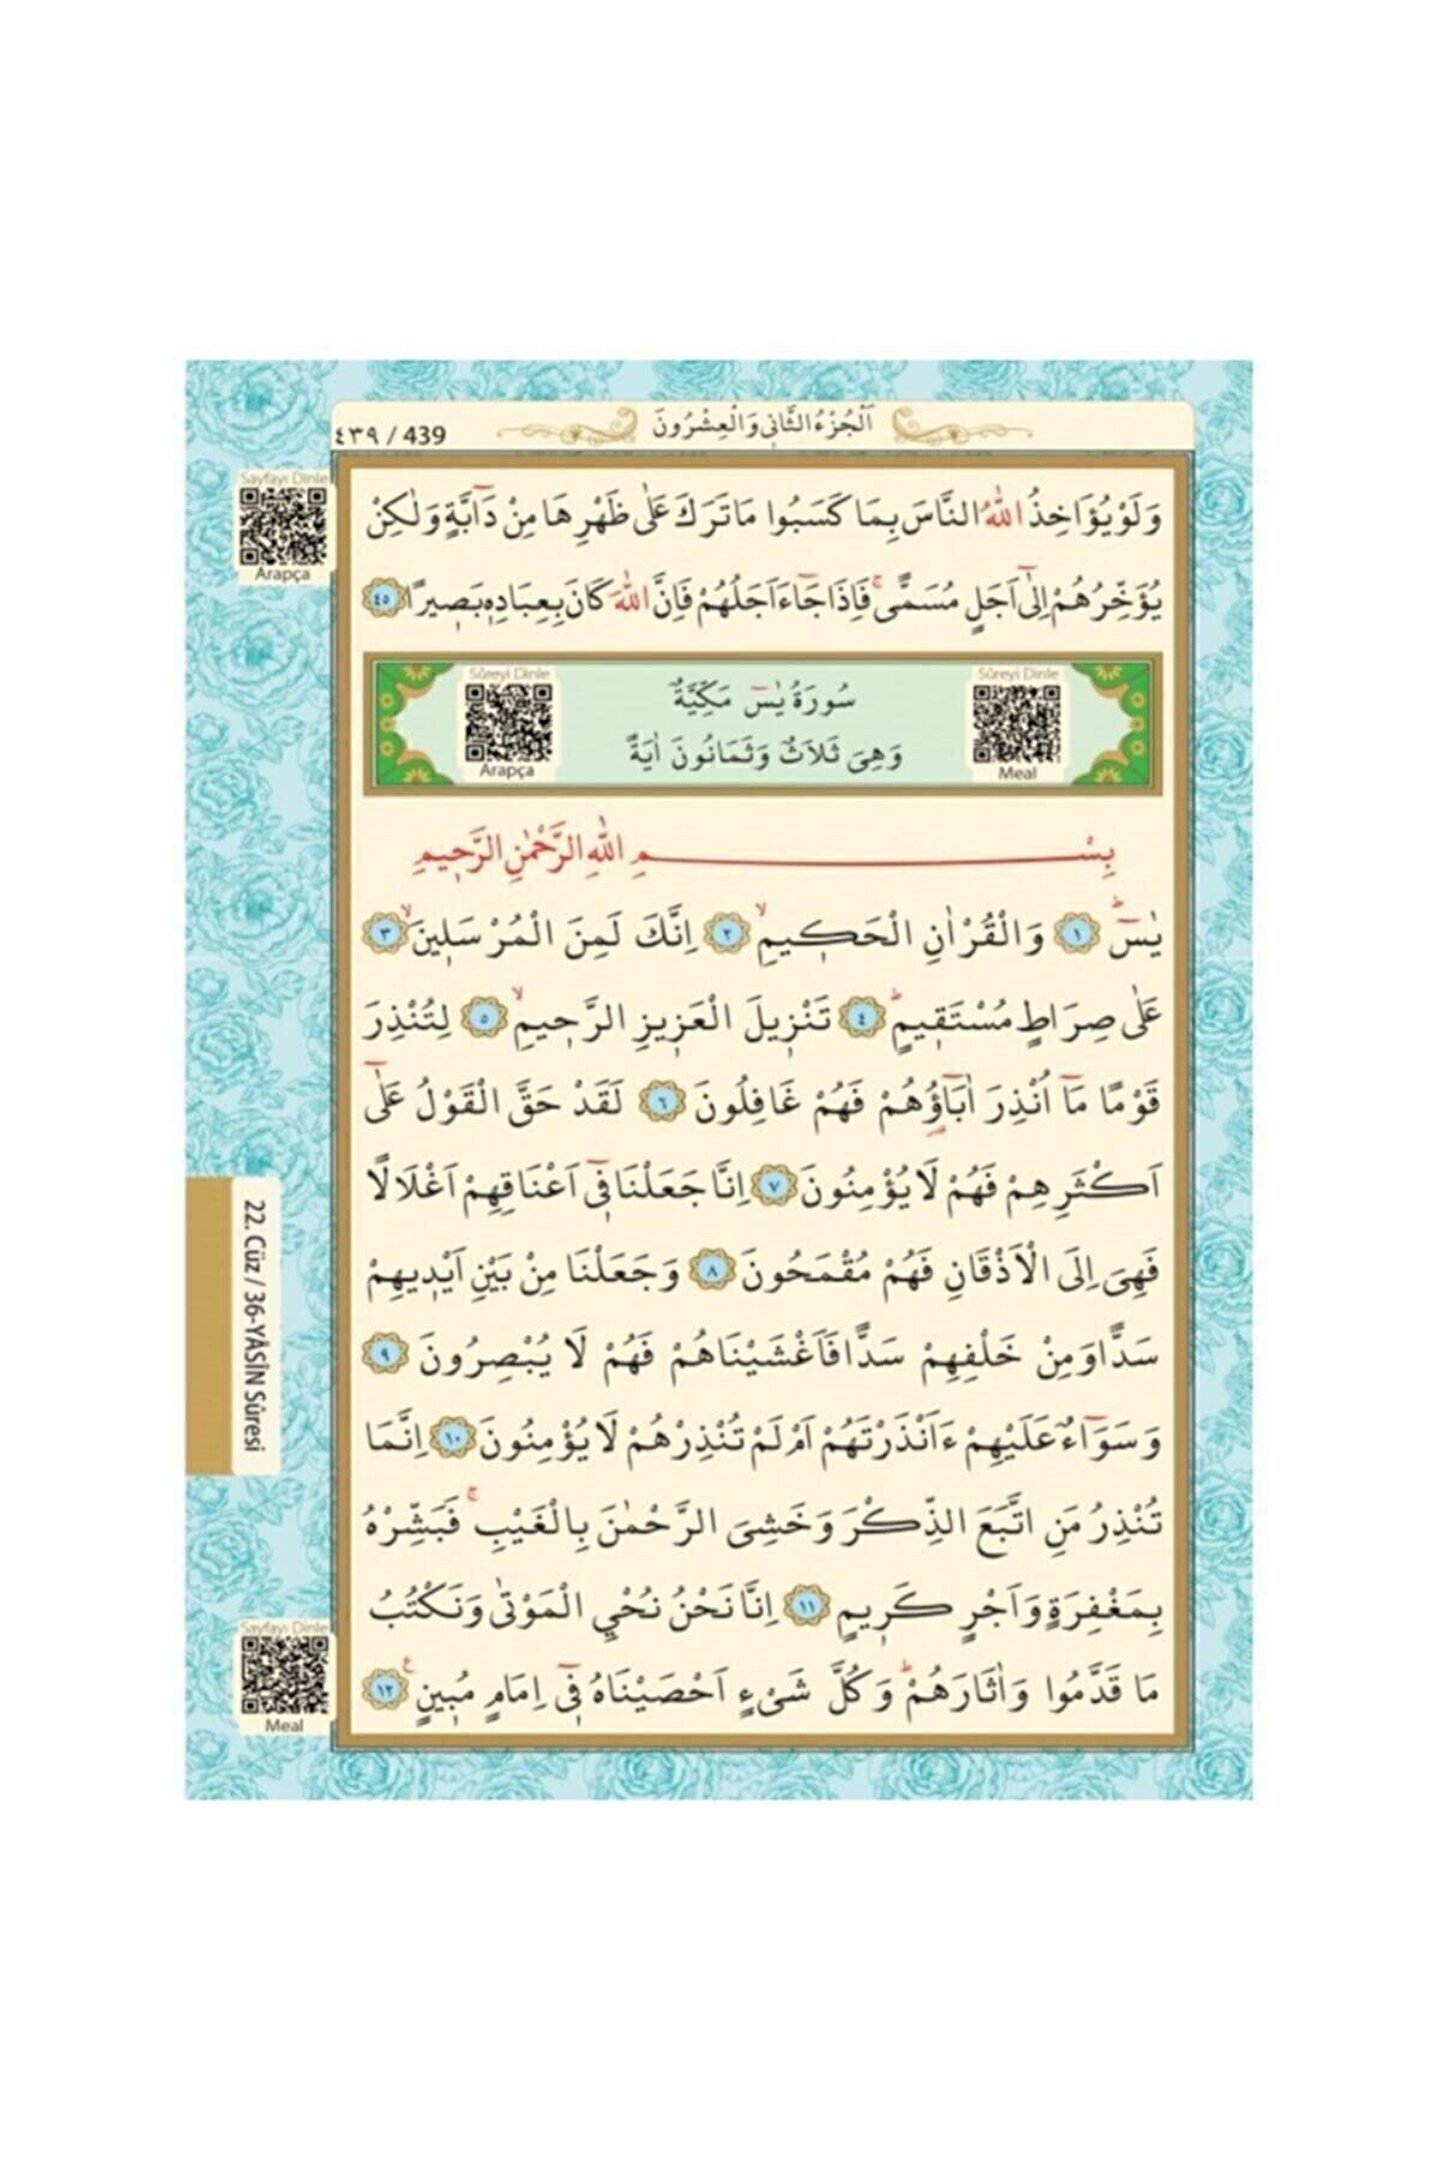 ٤٣٩ / 439
اَلْجُزْءُ الثَّانٖي وَالْعِشْرُونَ
Sayfayı Dinle
Arapça
وَلَوْ يُؤَاخِذُ اللّٰهُ النَّاسَ بِمَا كَسَبُوا مَا تَرَكَ عَلٰى ظَهْرِهَا مِنْ دَٓابَّةٍ وَلٰكِنْ
يُؤَخِّرُهُمْ اِلٰٓى اَجَلٍ مُسَمًّىۚ فَاِذَا جَٓاءَ اَجَلُهُمْ فَاِنَّ اللّٰهَ كَانَ بِعِبَادِهٖ بَصٖيرًا ٤٥
Sûreyi Dinle
Arapça
سُورَةُ يٰسٓ مَكِّيَّةٌ
وَهِيَ ثَلَاثٌ وَثَمَانُونَ اٰيَةً
Sûreyi Dinle
Meal
بِسْمِ اللّٰهِ الرَّحْمٰنِ الرَّحٖيمِ
يٰسٓۜ ١ وَالْقُرْاٰنِ الْحَكٖيمِۙ ٢ اِنَّكَ لَمِنَ الْمُرْسَلٖينَۙ ٣
عَلٰى صِرَاطٍ مُسْتَقٖيمٍۜ ٤ تَنْزٖيلَ الْعَزٖيزِ الرَّحٖيمِۙ ٥ لِتُنْذِرَ
قَوْمًا مَٓا اُنْذِرَ اٰبَٓاؤُ۬هُمْ فَهُمْ غَافِلُونَ ٦ لَقَدْ حَقَّ الْقَوْلُ عَلٰٓى
اَكْثَرِهِمْ فَهُمْ لَا يُؤْمِنُونَ ٧ اِنَّا جَعَلْنَا فٖٓي اَعْنَاقِهِمْ اَغْلَالًا
فَهِيَ اِلَى الْاَذْقَانِ فَهُمْ مُقْمَحُونَ ٨ وَجَعَلْنَا مِنْ بَيْنِ اَيْدٖيهِمْ
سَدًّا وَمِنْ خَلْفِهِمْ سَدًّا فَاَغْشَيْنَاهُمْ فَهُمْ لَا يُبْصِرُونَ ٩
وَسَوَٓاءٌ عَلَيْهِمْ ءَاَنْذَرْتَهُمْ اَمْ لَمْ تُنْذِرْهُمْ لَا يُؤْمِنُونَ ١٠ اِنَّمَا
تُنْذِرُ مَنِ اتَّبَعَ الذِّكْرَ وَخَشِيَ الرَّحْمٰنَ بِالْغَيْبِۚ فَبَشِّرْهُ
بِمَغْفِرَةٍ وَاَجْرٍ كَرٖيمٍ ١١ اِنَّا نَحْنُ نُحْيِ الْمَوْتٰى وَنَكْتُبُ
مَا قَدَّمُوا وَاٰثَارَهُمْۜ وَكُلَّ شَيْءٍ اَحْصَيْنَاهُ فٖٓي اِمَامٍ مُبٖينٍ ١٢
22. Cüz / 36-YÂSİN Sûresi
Sayfayı Dinle
Meal